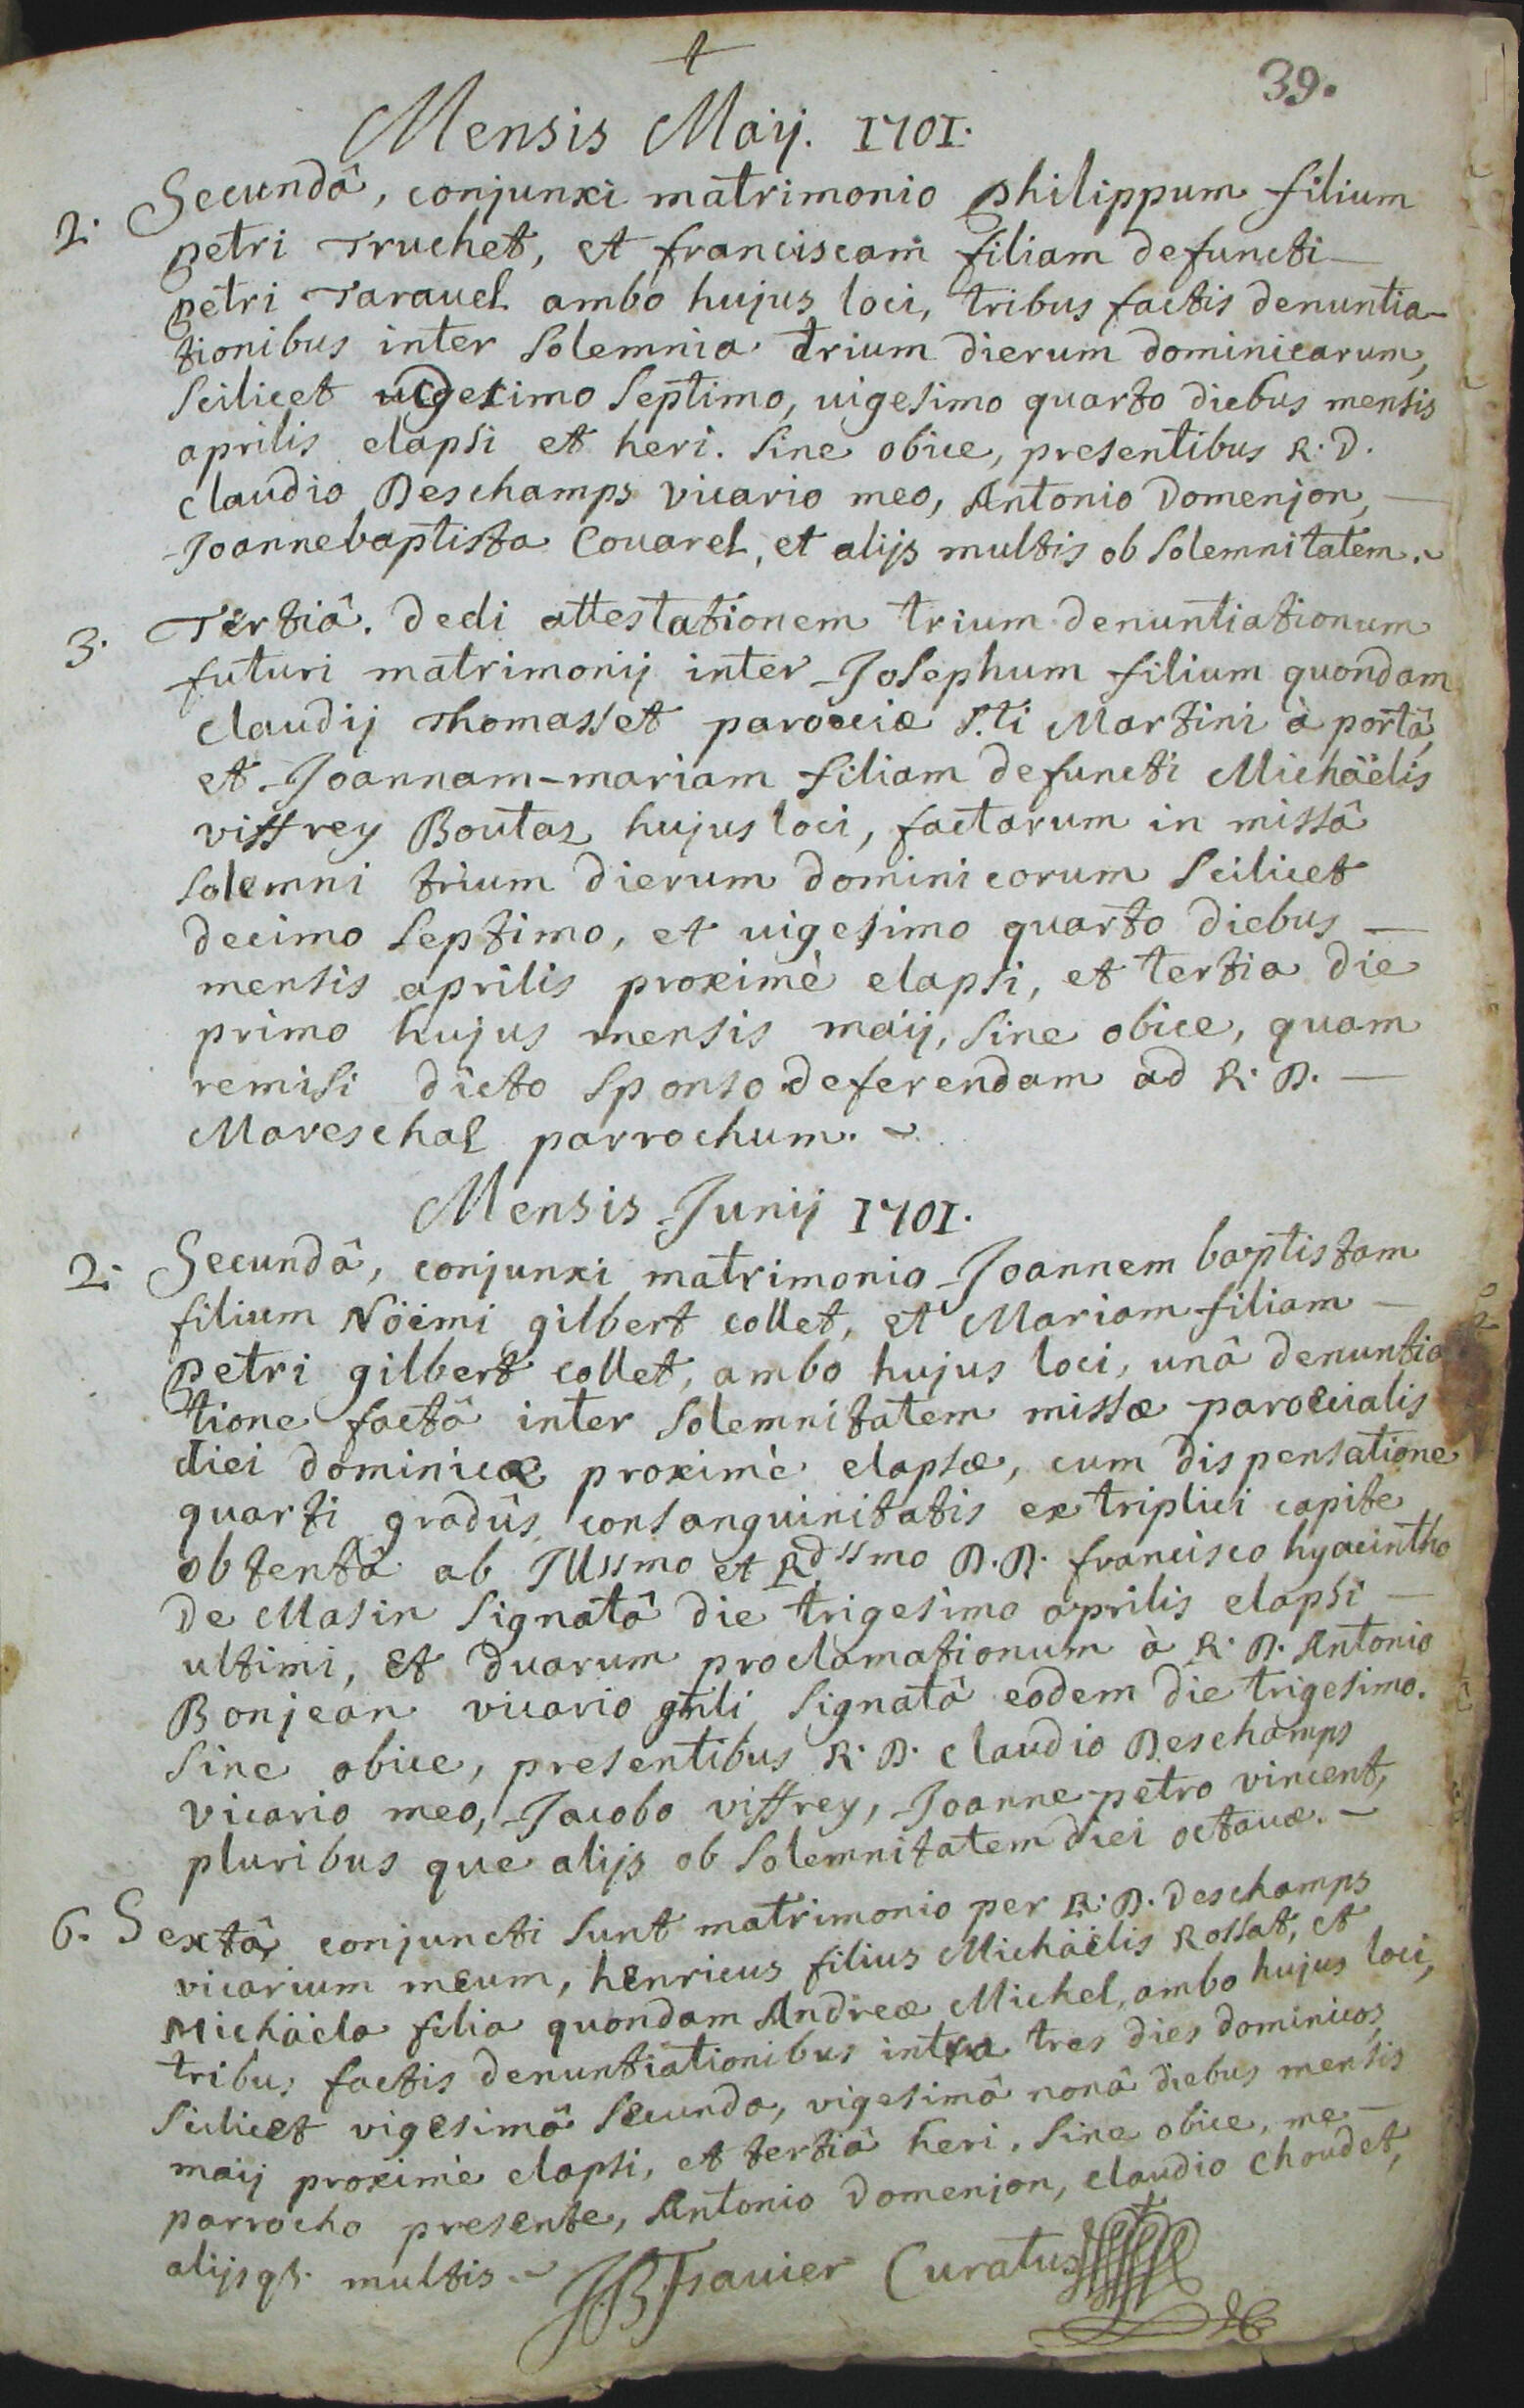 †
39.
Mensis Maij. 1701.
2. Secundâ, conjunxi matrimonio philippum filium
petri Truchet, et franciscam filiam defuncti
petri Taravel ambo hujus loci, tribus factis denuntia-
tionibus inter Solemnia trium dierum dominicarum,
Scilicet Septimo, uigesimo quarto diebus mensis
aprilis elapsi et heri. Sine obice, presentibus R. D.
claudio Deschamps vicario meo, Antonio Domenjon,
Joannebaptista Couarel, et alijs multis ob Solemnitatem.
3. Tertiâ. dedi attestationem trium denuntiationum
futuri matrimonij inter Josephum filium quondam
claudij Thomasset parocciæ S.ti Martini à portâ,
et Joannam-mariam filiam defuncti Michäelis
viffrey Boutaz hujus loci, factarum in missâ
solemni trium dierum dominicorum Scilicet
decimo Septimo, et uigesimo quarto diebus
mensis aprilis proximè elapsi, et tertia die
primo hujus mensis maij, Sine obice, quam
remisi dicto Sponso deferendam ad R. D.
Mareschal parrochum.
Mensis Junij 1701.
2. Secundâ, conjunxi matrimonio Joannem baptistam
filium Nöemi gilbert collet, et Mariam filiam
petri gilbert collet, ambo hujus loci, unâ denuntia
tione factâ inter Solemnitatem missæ paroccialis
diei dominicæ proximè elapsæ, cum dispensatione
quarti gradûs consanguinitatis ex triplici capite
obtentâ ab Illssmo et Rdssmo D. D. francisco hyacintho
de Masin Signatâ die trigesimo aprilis elapsi
ultimi, et duarum proclamationum à R. D. Antonio
Bonjean vicario gnli Signatâ eodem die trigesimo.
Sine obice, presentibus R. D. claudio Deschamps
vicario meo, Jacobo viffrey, Joanne-petro vincent,
pluribus que alijs ob Solemnitatem diei octauæ.
6. Sextâ, conjuncti Sunt matrimonio per R. D. deschamps
vicarium meum, henricus filius Michäelis Rossat, et
Michäela filia quondam Andreæ Michel, ambo hujus loci,
tribus factis denuntiationibus intra tres dies dominicos,
Scilicet vigesimâ Secunda, vigesimâ nonâ diebus mensis
maij proximè elapsi, et tertiâ heri. Sine obice, me
parrocho presente, Antonio Domenjon, claudio choudet,
alijsqs. multis. Curatus